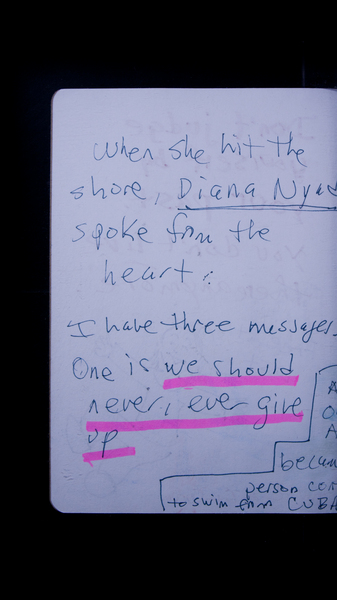 When she hit the
shore, Diana Nyad
spoke from the
heart:
I have three messages.
One is we should
never, ever give
up
A
O
A
becam
person con
to swim from CUBA